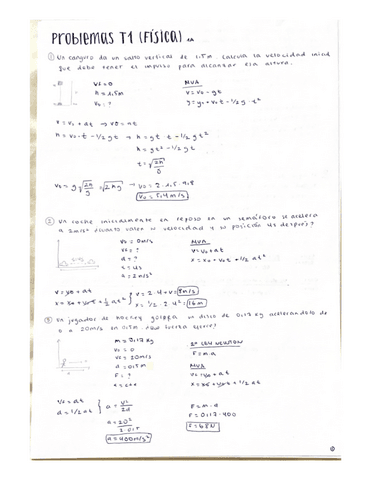 Problemas T1 (Física)
① Un canguro da un salto vertical de 1,5m calcula la velocidad inicial
que debe tener el impulso para alcanzar esa altura.
VF = 0
h = 1,5m
v₀ = ?
MUA
v = v₀ - gt
y = y₀ + v₀t - 1/2 g · t²
h = v₀ · t - 1/2 gt → h = gt · t - 1/2 gt²
h = gt² - 1/2 gt²
t = √2h/g
v₀ = g √2h/g = √2hg → v₀ = 2 · 1,5 · 9,8
v₀ = 5,4 m/s
② Un coche inicialmente en reposo en un semáforo se acelera
a 2m/s² cuanto valen su velocidad y su posición 4s después?
v₀ = 0m/s
v = ?
d = ?
t = 4s
a = 2m/s²
MUA
v = v₀ + at
x = x₀ + v₀t + 1/2 at²
v = v₀ + at
x = x₀ + v₀t + 1/2 at²
v = 2 · 4 → v = 8m/s
x = 1/2 · 2 · 4² = 16m
③ Un jugador de hockey golpea un disco de 0,17 kg acelerandolo de
0 a 20m/s en 0,5m. ¿Que fuerza ejerce?
m = 0,17kg
v₀ = 0
v = 20m/s
d = 0,5m
F = ?
2ª Ley Newton
F = m.a
MUA
v = v₀ + at
x = x₀ + v₀t + 1/2 at²
v = at
d = 1/2 at
a = v²/2d
a = 20²/2·0,5
a = 400m/s²
F = m · a
F = 0,17 · 400
F = 68N